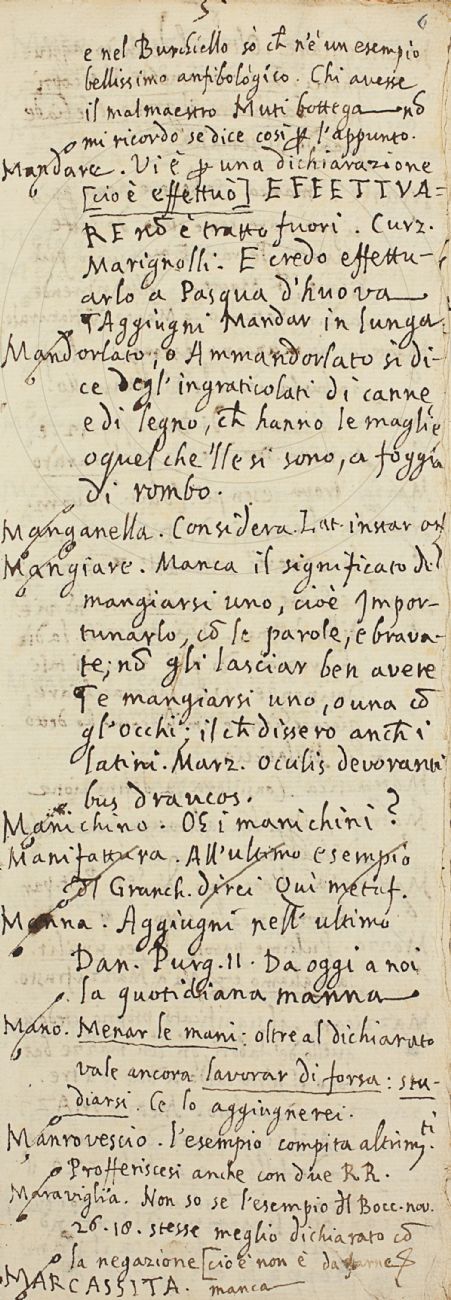 5 6
e nel Burchiello sò ch̃ n'è un esempio
bellissimo anfibológico. Chi avesse
il malmaestro Muti bottega nõ
mi ricordo se dice così ꝑ l'appunto.
Mandare. Vi è ꝑ una dichiarazione
[cio è effettuò] EFEETTVA=
RE nõ è tratto fuori. Curz.
Marignolli. E credo effettu-
arlo a Pasqua d'huova
Aggiugni Mandar in lunga
Mandorlato, o Ammandorlato si di-
ce degl' ingraticolati di canne
e di legno, ch̃ hanno le maglie
o quel che 'lle si sono, a foggia
di rombo.
Manganella. Considera. Lat. instar
Mangiare. Manca il significato del
mangiarsi uno, cioè Impor-
tunarlo, cõ le parole, e brava-
te; nõ gli lasciar ben avere
E mangiarsi uno, o una cõ
gl'occhi; il ch̃ dissero anch̃ i
latini. Marz. oculis devoranti
bus draucos.
Manichino. O i manichini?
Manifattura. All'ultimo esempio
dl Granch. direi Qui metaf.
Manna. Aggiugni nell' ultimo
Dan. Purg. 11. Da oggi a noi
la quotidiana manna
Mano. Menar le mani: oltre al dichiarato
vale ancora lavorar di forsa: stu-
diarsi. Ce lo aggiugnerei.
Manrovescio. l'esempio compita altrimti.
Profferiscesi anche con due RR.
Maraviglia. Non so se l'esempio dl Bocc. nov.
26. 18. stesse meglio dichiarato cõ
la negazione [cio è non è da farne
MARCASSITA. manca